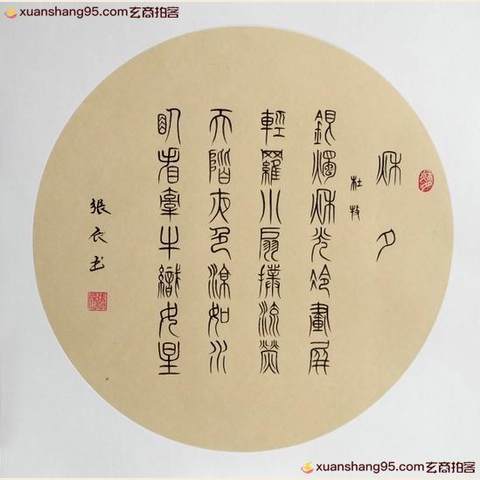 xuanshang95.com玄商拍客
秋夕
杜牧
銀燭秋光冷畫屏
輕羅小扇撲流螢
天階夜色涼如水
臥看牽牛織女星
張衣书
xuanshang95.com玄商拍客